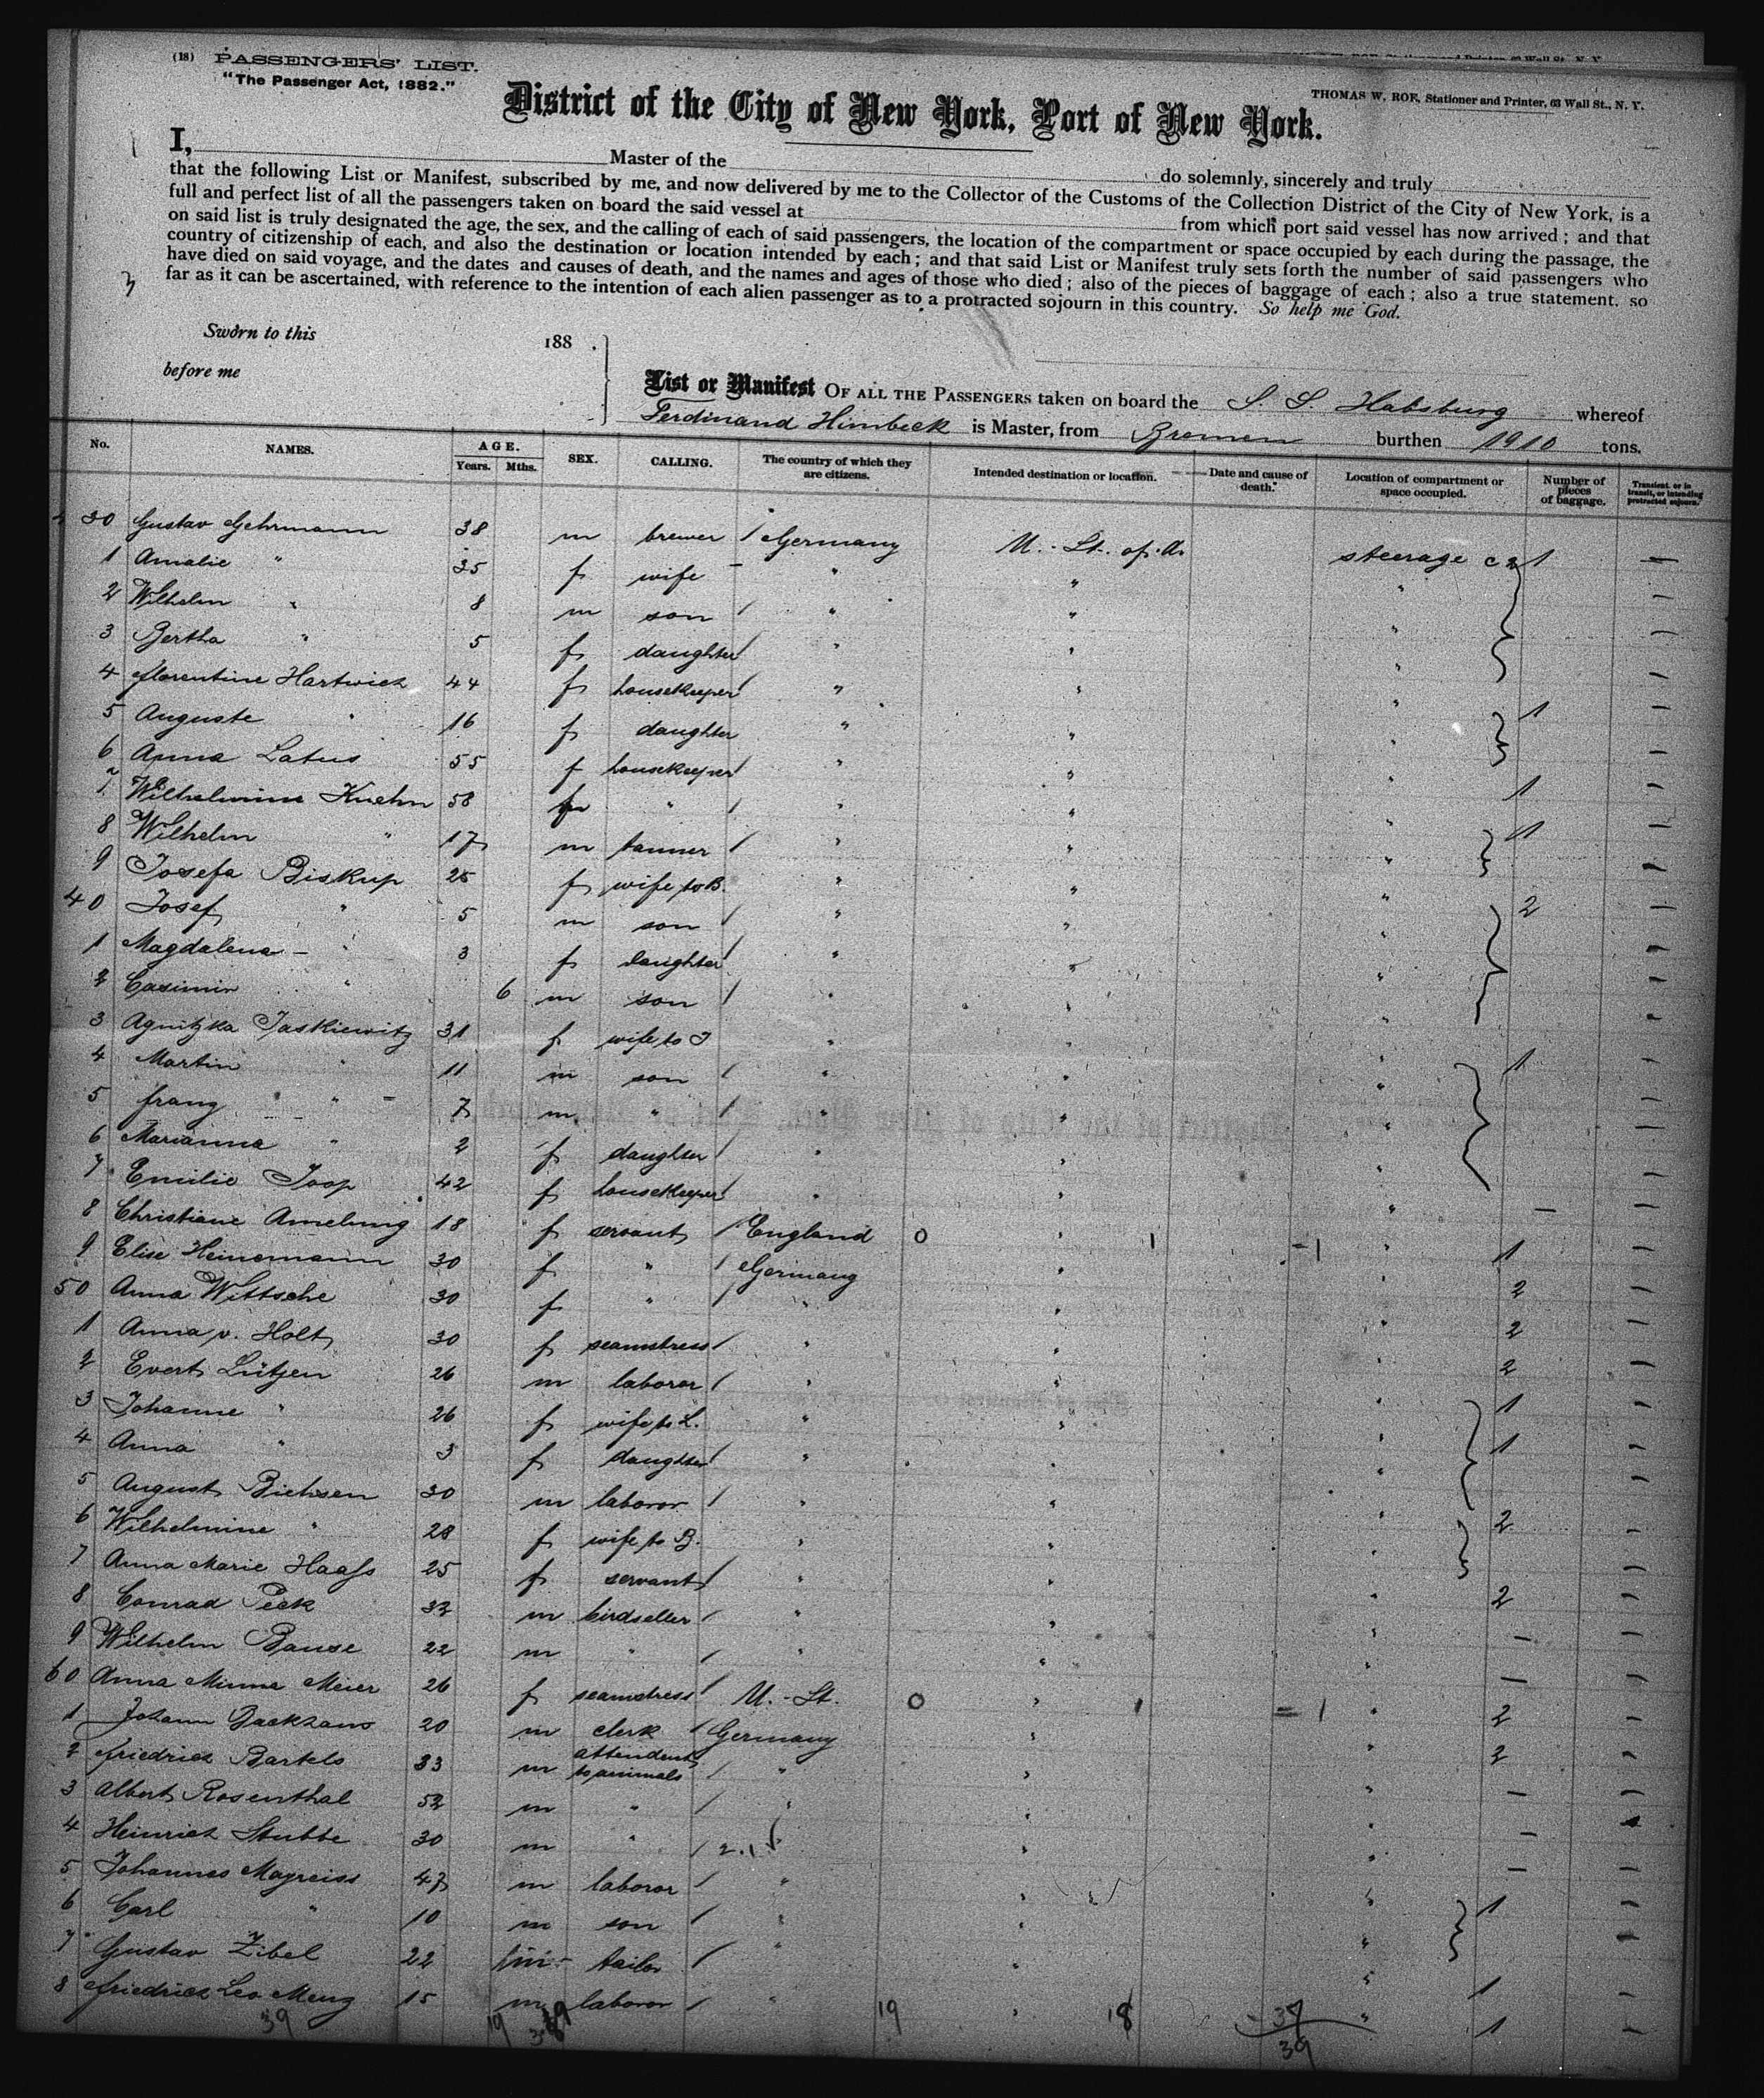 (18) PASSENGERS' LIST.
"The Passenger Act, 1882."
THOMAS W. ROE, Stationer and Printer, 63 Wall St., N. Y.
District of the City of New York, Port of New York.
I, Master of the do solemnly, sincerely and truly
that the following List or Manifest, subscribed by me, and now delivered by me to the Collector of the Customs of the Collection District of the City of New York, is a
full and perfect list of all the passengers taken on board the said vessel at from which port said vessel has now arrived; and that
on said list is truly designated the age, the sex, and the calling of each of said passengers, the location of the compartment or space occupied by each during the passage, the
country of citizenship of each, and also the destination or location intended by each; and that said List or Manifest truly sets forth the number of said passengers who
have died on said voyage, and the dates and causes of death, and the names and ages of those who died; also of the pieces of baggage of each; also a true statement, so
far as it can be ascertained, with reference to the intention of each alien passenger as to a protracted sojourn in this country. So help me God.
Sworn to this 188 .
before me
List or Manifest OF ALL THE PASSENGERS taken on board the S. S. Habsburg whereof
Ferdinand Himbeck is Master, from Bremen burthen 1910 tons.
No. NAMES. AGE. Years. Mths. SEX. CALLING. The country of which they are citizens. Intended destination or location. Date and cause of death. Location of compartment or space occupied. Number of pieces of baggage. Transient, or in transit, or intending protracted sojourn.
30 Gustav Gehrmann 38 m brewer / Germany U. St. of A. steerage c 2 1 —
1 Amalie " 35 f wife " " " —
2 Wilhelm " 8 m son / " " " —
3 Bertha " 5 f daughter / " " " —
4 Florentine Hartwich 44 f housekeeper / " " " 1 —
5 Auguste " 16 f daughter " " " —
6 Anna Latus 55 f housekeeper / " " " 1 —
7 Wilhelmine Kuehn 58 f " / " " " 1 —
8 Wilhelm " 17 m tanner / " " " —
9 Josefa Biskup 25 f wife to B. " " " 2 —
40 Josef " 5 m son / " " " —
1 Magdalena " 3 f daughter / " " " —
2 Casimir " 6 m son / " " " —
3 Agnitzka Jaskiewitz 31 f wife to J " " " 1 —
4 Martin " 11 m son / " " " —
5 Franz " 7 m " / " " " —
6 Marianna " 2 f daughter / " " " —
7 Emilie Joop 42 f housekeeper / " " " — —
8 Christiane Amelung 18 f servant / England 0 " " 1 —
9 Elise Heinemann 30 f " / Germany " " 2 —
50 Anna Wittsche 30 f " / " " " 2 —
1 Anna v. Holt 30 f seamstress / " " " 2 —
2 Evert Lütjen 26 m laborer / " " " 1 —
3 Johanne " 26 f wife to L. " " " 1 —
4 Anna " 3 f daughter / " " " —
5 August Biehsen 30 m laborer / " " " 2 —
6 Wilhelmine " 28 f wife to B. " " " —
7 Anna Marie Haass 25 f servant / " " " 2 —
8 Conrad Peek 32 m birdseller / " " " — —
9 Wilhelm Bause 22 m " / " " " — —
60 Anna Minna Meier 26 f seamstress / U. St. 0 " " 2 —
1 Johann Backhaus 20 m clerk / Germany " " 2 —
2 Friedrich Bartels 33 m attendent to animals / " " " — —
3 Albert Rosenthal 52 m " / " " " —
4 Heinrich Stubbe 30 m " / " " — —
5 Johannes Mayreiss 47 m laborer / " " " 1 —
6 Carl " 10 m son / " " " —
7 Gustav Zibel 22 m tailor / " " " 1 —
8 Friedrich Leo Meng 15 m laborer / " " " 1 —
39 19 19 18 37
39